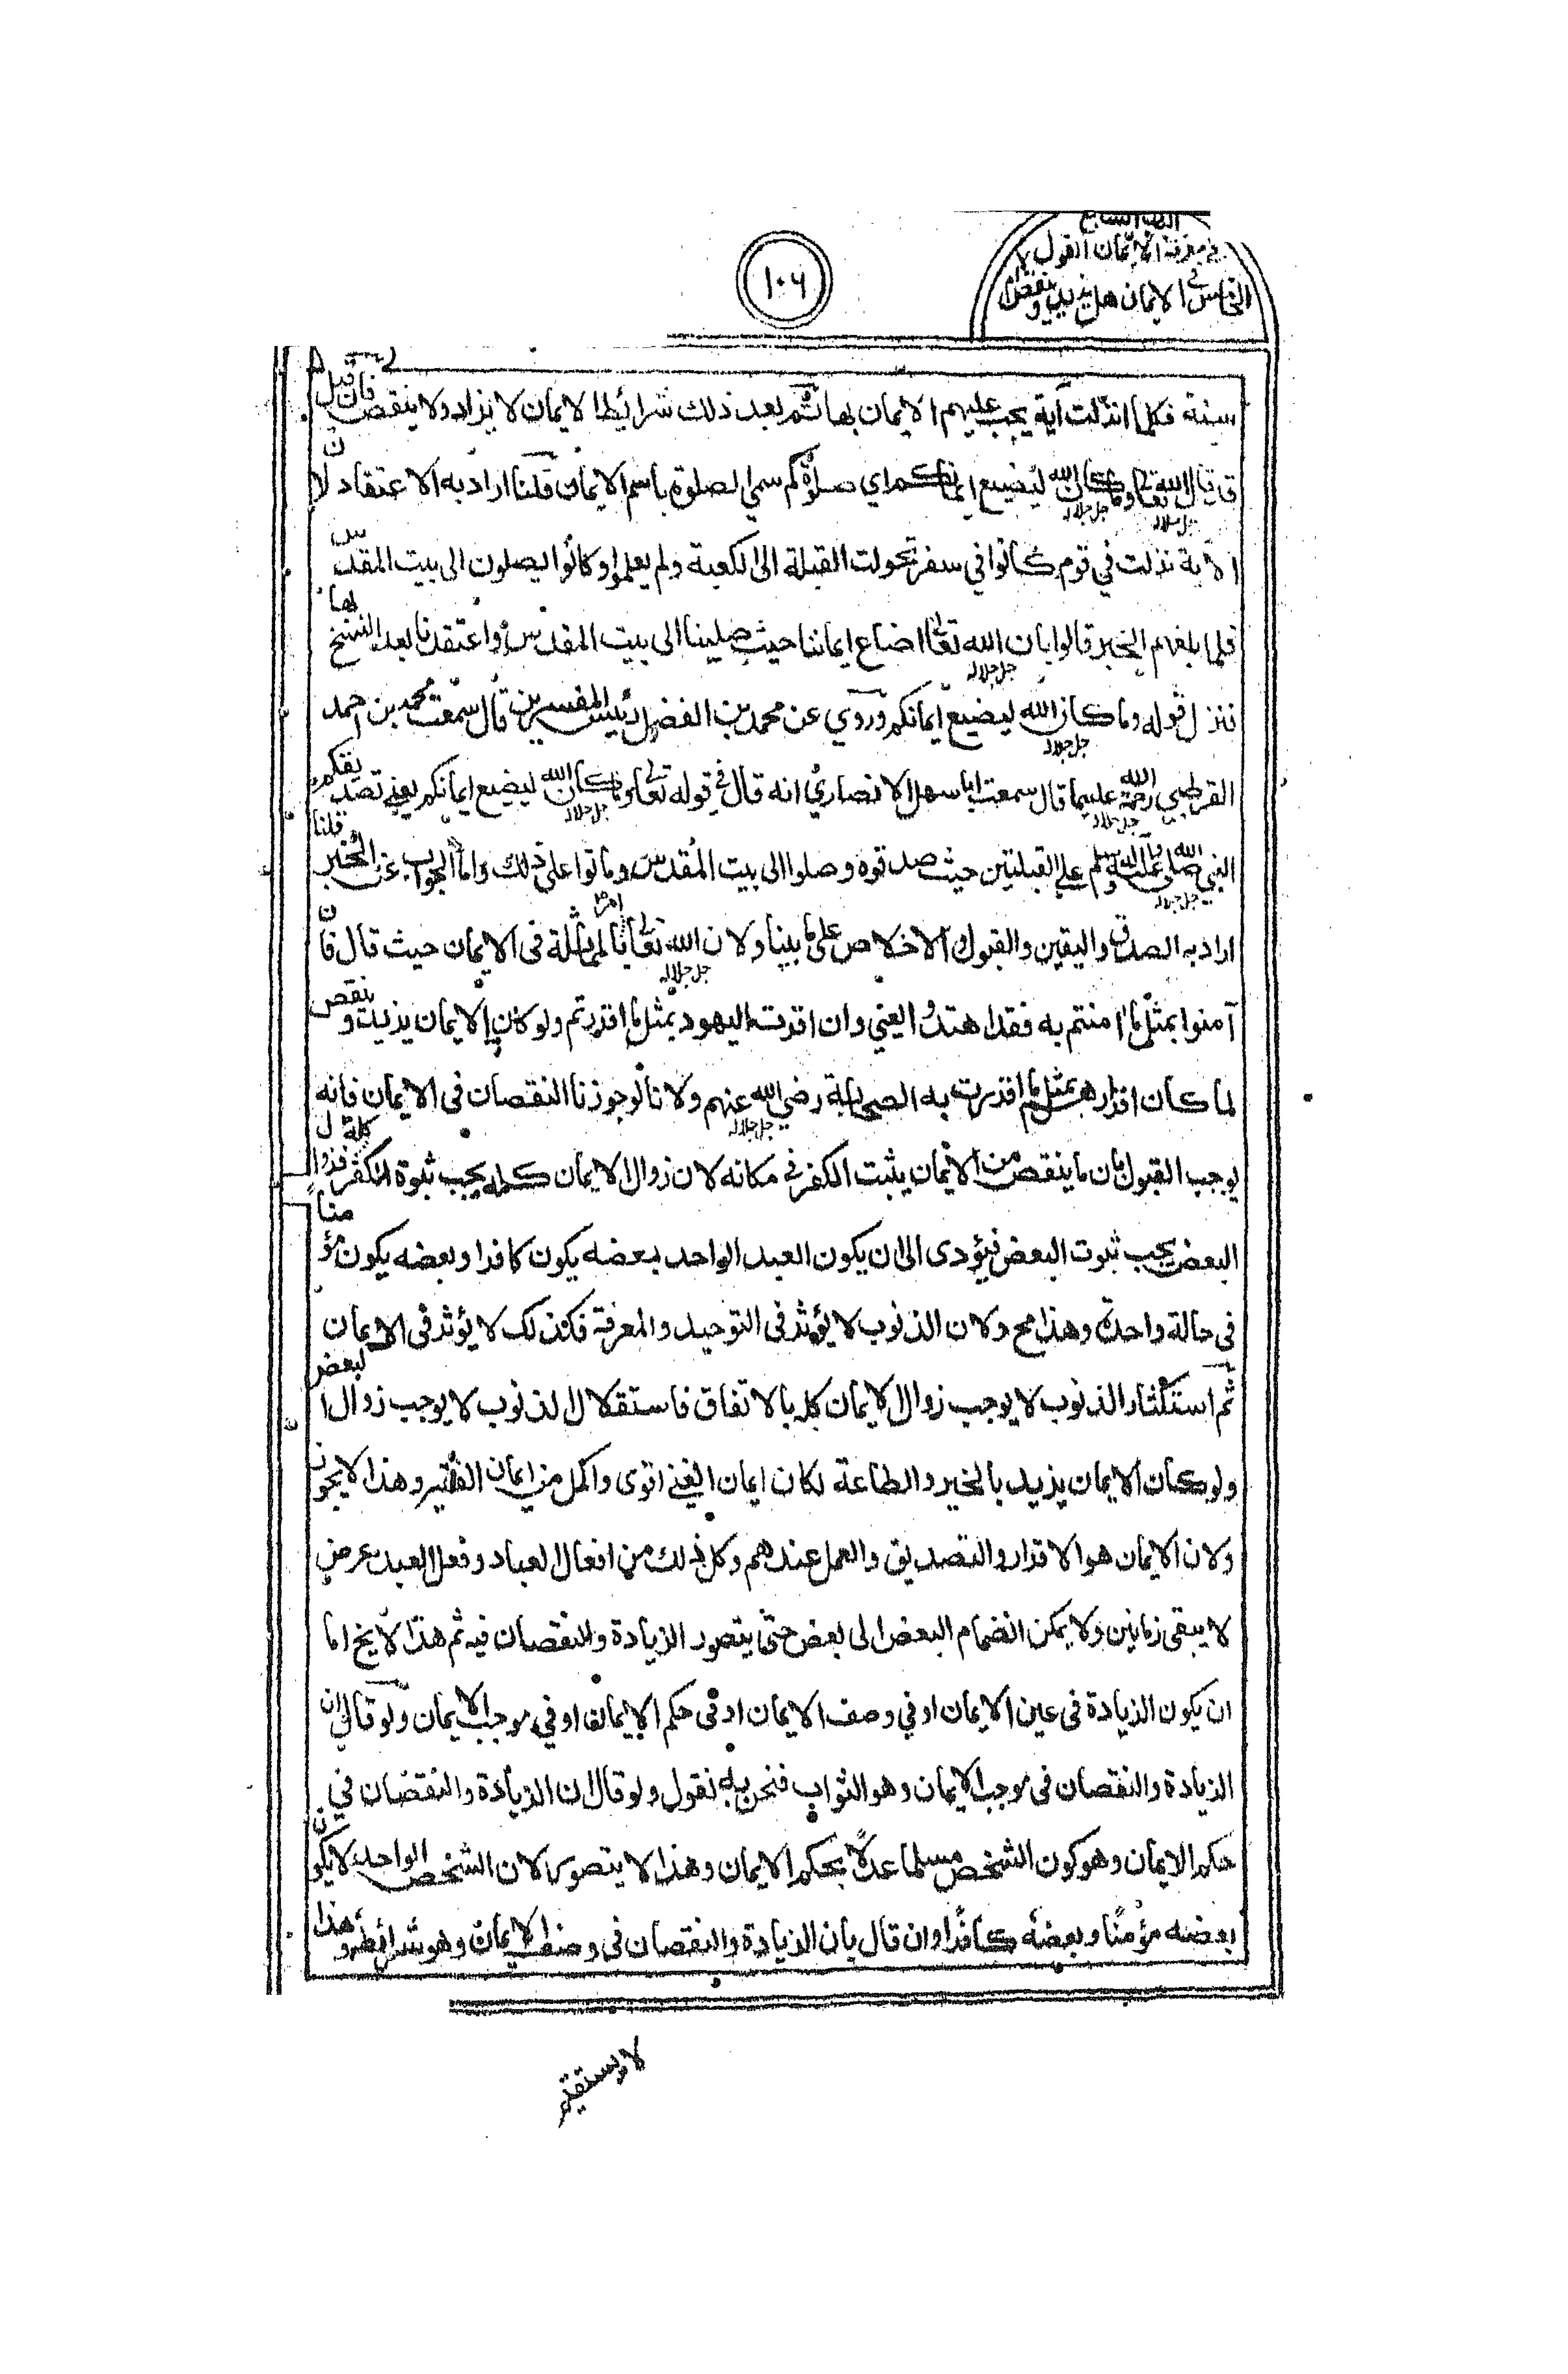 الباب السابع
في معرفة الايمان القول
الخامس في الايمان هل يزيد وينقص ام لا
١٠٦
سنة فكلما انزلت آية يجب عليهم الايمان بها ثم بعد ذلك شرائط الايمان لا يزاد ولا ينقص فان قيل
قد قال الله تعالى وما كان الله جل جلاله ليضيع ايمانكم اي صلوٰتكم سمي الصلوة باسم الايمان قلنا اراد به الاعتقاد لان
الآية نزلت في قوم كانوا في سفر تحولت القبلة الى الكعبة ولم يعلموا وكانوا يصلون الى بيت المقدس
فلما بلغهم الخبر قالوا بان الله تعالى جل جلاله اضاع ايماننا حيث صلينا الى بيت المقدس واعتقدنا بعد النسخ بها
فنزل قوله وما كان الله جل جلاله ليضيع ايمانكم وروي عن محمد بن الفضل رئيس المفسرين قال سمعت محمد بن احمد
القرطبي رحمة الله جل جلاله عليهما قال سمعت ابا سهل الانصاري انه قال في قوله تعالى وما كان الله جل جلاله ليضيع ايمانكم يعني تصديقكم
النبي صلى الله جل جلاله عليه وآله وسلم على القبلتين حيث صدقوه وصلوا الى بيت المقدس وماتوا على ذلك واما الجواب عن الخبر قلنا
اراد به الصدق واليقين والقبول الاخلاص على ما بينا ولان الله جل جلاله تعالى امرنا بالمماثلة في الايمان حيث قال فان
آمنوا بمثل ما امنتم به فقد اهتدوا يعني وان اقرت اليهود بمثل ما اقررتم ولو كان الايمان يزيد وينقص
لما كان اقرارهم بمثل ما اقررت به الصحابة رضي الله جل جلاله عنهم ولانا لو جوزنا النقصان في الايمان فانه
يوجب القبول بان ما ينقص من الايمان يثبت الكفر في مكانه لان زوال الايمان كله يجب ثبوة الكفر كله فزوال
البعض يجب ثبوت البعض فيؤدى الى ان يكون العبد الواحد بعضه يكون كافرا وبعضه يكون مؤمناً
في حالة واحدة وهذا مح ولان الذنوب لا يؤثر في التوحيد والمعرفة فكذلك لا يؤثر في الايمان
ثم استكثار الذنوب لا يوجب زوال الايمان كله بالاتفاق فاستقلال الذنوب لا يوجب زوال البعض
ولو كان الايمان يزيد بالخير والطاعة لكان ايمان الغني اقوى واكمل من ايمان الفقير وهذا لا يجوز
ولان الايمان هو الاقرار والتصديق والعمل عندهم وكل ذلك من افعال العباد وفعل العبد عرض
لا يبقى زمانين ولا يمكن انضمام البعض الى بعض حتى يتصور الزيادة والنقصان فيه ثم هذا لا يخ اما
ان يكون الزيادة في عين الايمان او في وصف الايمان او في حكم الايمان او في موجب الايمان ولو قال ان
الزيادة والنقصان في موجب الايمان وهو الثواب فنحن به نقول ولو قال ان الزيادة والنقصان في
حكم الايمان وهو كون الشخص مسلما عدلا بحكم الايمان وهذا لا يتصور لان الشخص الواحد لا يكون
بعضه مؤمنًا وبعضه كافرا وان قال بان الزيادة والنقصان في وصف الايمان وهو شرائطه وهذا
لا يستقيم